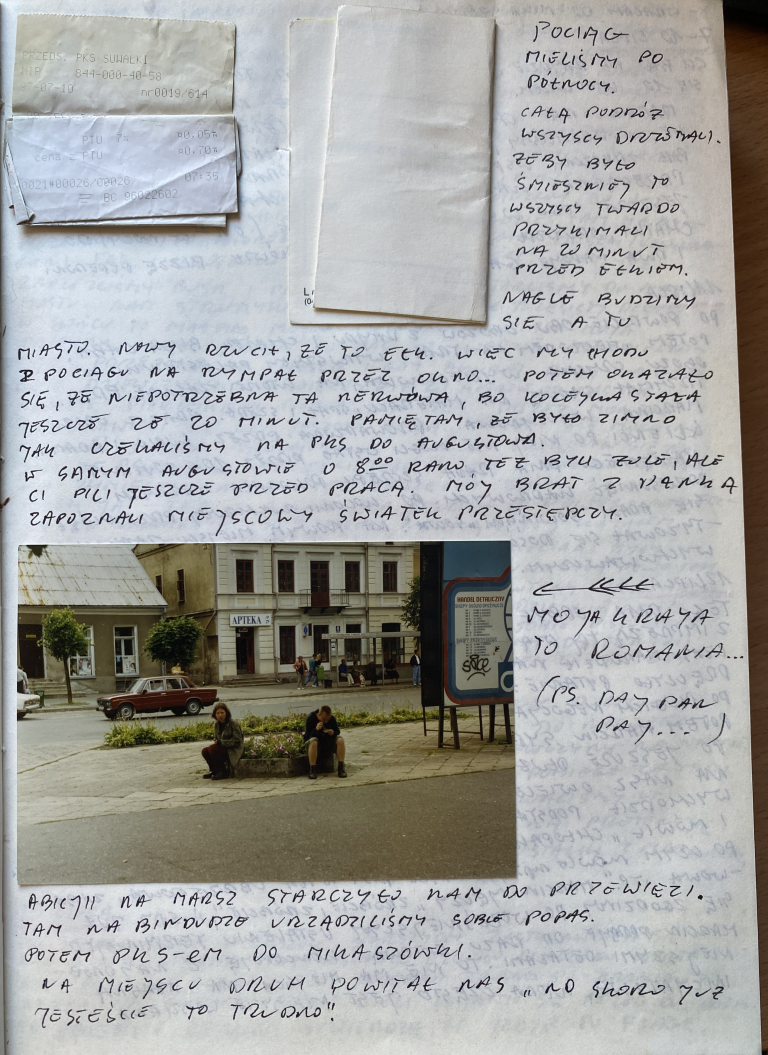 PRZEDS. PKS SUWAŁKI
NIP 844-000-40-58
-07-10 nr0019/614
PTU 7% ¤0.05
cena z PTU ¤0.70
0021#00026/00026 07:35
BC 96022602
POCIĄG
MIELIŚMY PO
PÓŁNOCY.
CAŁĄ PODRÓŻ
WSZYSCY DRZEMALI.
ŻEBY BYŁO
ŚMIESZNIEJ TO
WSZYSCY TWARDO
PRZYKIMALI
NA 20 MINUT
PRZED EŁKIEM.
NAGLE BUDZIMY
SIĘ A TU
MIASTO. NOWY RZUCIŁ, ŻE TO EŁK. WIĘC MY CHODU
Z POCIĄGU NA RYMPAŁ PRZEZ OKNO... POTEM OKAZAŁO
SIĘ, ŻE NIEPOTRZEBNA TA NERWÓWA, BO KOLEJKA STAŁA
JESZCZE ZE 20 MINUT. PAMIĘTAM, ŻE BYŁO ZIMNO
JAK CZEKALIŚMY NA PKS DO AUGUSTOWA.
W SAMYM AUGUSTOWIE O 8⁰⁰ RANO TEŻ BYLI ŻULE, ALE
CI PILI JESZCZE PRZED PRACĄ. MÓJ BRAT Z
ZAPOZNALI MIEJSCOWY ŚWIATEK PRZESTĘPCZY.
APTEKA
HANDEL DETALICZNY
MOJA KRAJA
TO ROMANIA...
(PS. DAJ PAN
DAJ...)
ABICJI NA MARSZ STARCZYŁO NAM DO PRZEWIĘZI.
TAM NA BINDUDZE URZĄDZILIŚMY SOBIE POPAS.
POTEM PKS-EM DO MIKASZÓWKI.
NA MIEJSCU DRUH POWITAŁ NAS „NO SKORO JUŻ
JESTEŚCIE TO TRUDNO".